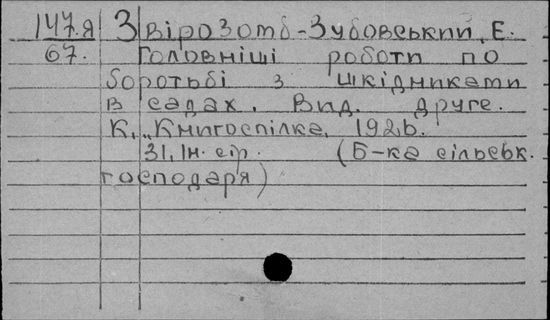 147.Я Звірозомб-Зубовський, Е.
67. Головніші роботи по
боротьбі з шкідниками
в садах. Вид. друге.
К. „Книгоспілка, 1926.
31, Ін. стр. (Б-ка сільськ.
господаря)